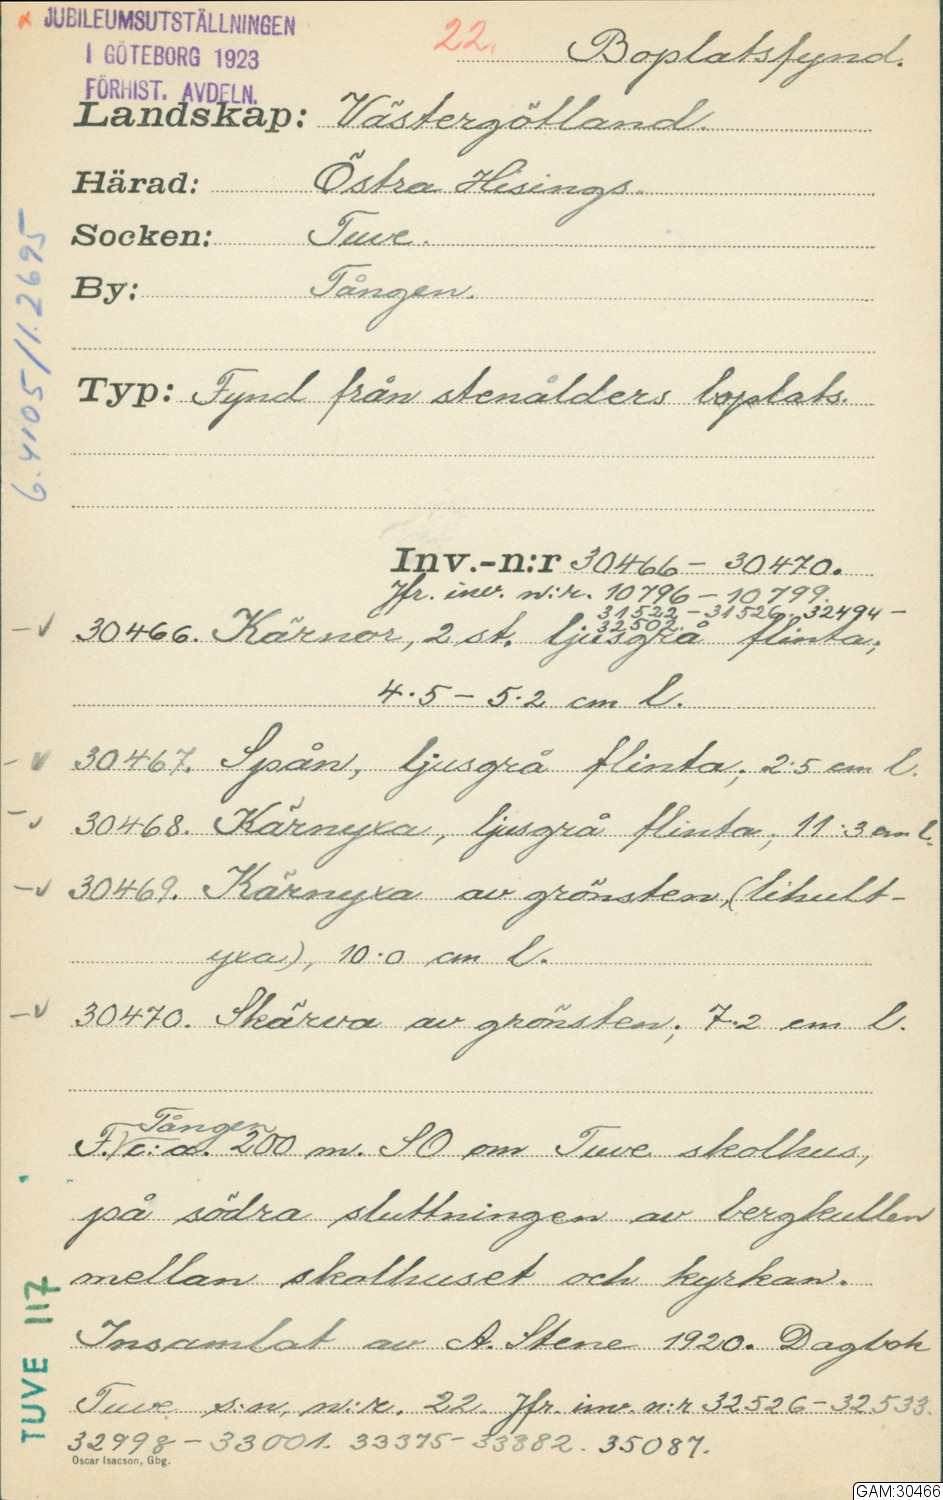 JUBILEUMSUTSTÄLLNINGEN
I GÖTEBORG 1923
FÖRHIST. AVDELN.
22.
Boplatsfynd.
Landskap: Västergötland.
Härad: Östra Hisings.
Socken: Tuve.
By: Tången.
Typ: Fynd från stenålders boplats.
6.4105/1.2695
Inv.-n:r 30466 – 30470.
Jfr. inv. n:r. 10796 – 10799.
31522 – 31526. 32494 –
32502.
30466. Kärnor, 2 st. ljusgrå flinta;
4.5 – 5.2 cm l.
30467. Spån, ljusgrå flinta; 2.5 cm l.
30468. Kärnyxa, ljusgrå flinta; 11.3 cm l.
30469. Kärnyxa av grönsten, (lihult-
yxa), 10.0 cm l.
30470. Skärva av grönsten; 7.2 cm l.
Tången
F. c:a. 200 m. SO om Tuve skolhus,
på södra sluttningen av bergkullen
mellan skolhuset och kyrkan.
Insamlat av A. Stene 1920. Dagbok
Tuve s:n, n:r. 22. Jfr. inv. n:r 32526 – 32533.
32998 – 33001. 33375 – 33382. 35087.
TUVE 117
Oscar Isacson, Gbg.
GAM:30466